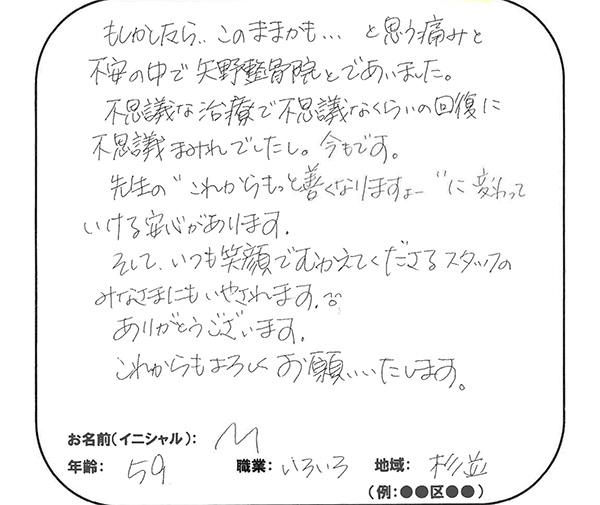 もしかしたら、このままかも… と思う痛みと
不安の中で矢野整骨院とであいました。
不思議な治療で不思議なくらいの回復に
不思議まみれでしたし。今もです。
先生の"これからもっと善くなりますよー"に変わって
いける安心があります。
そして、いつも笑顔でむかえてくださるスタッフの
みなさまにもいやされます。
ありがとうございます。
これからもよろしくお願いいたします。
お名前(イニシャル): M
年齢: 59 職業: いろいろ 地域: 杉並
(例:●●区●●)